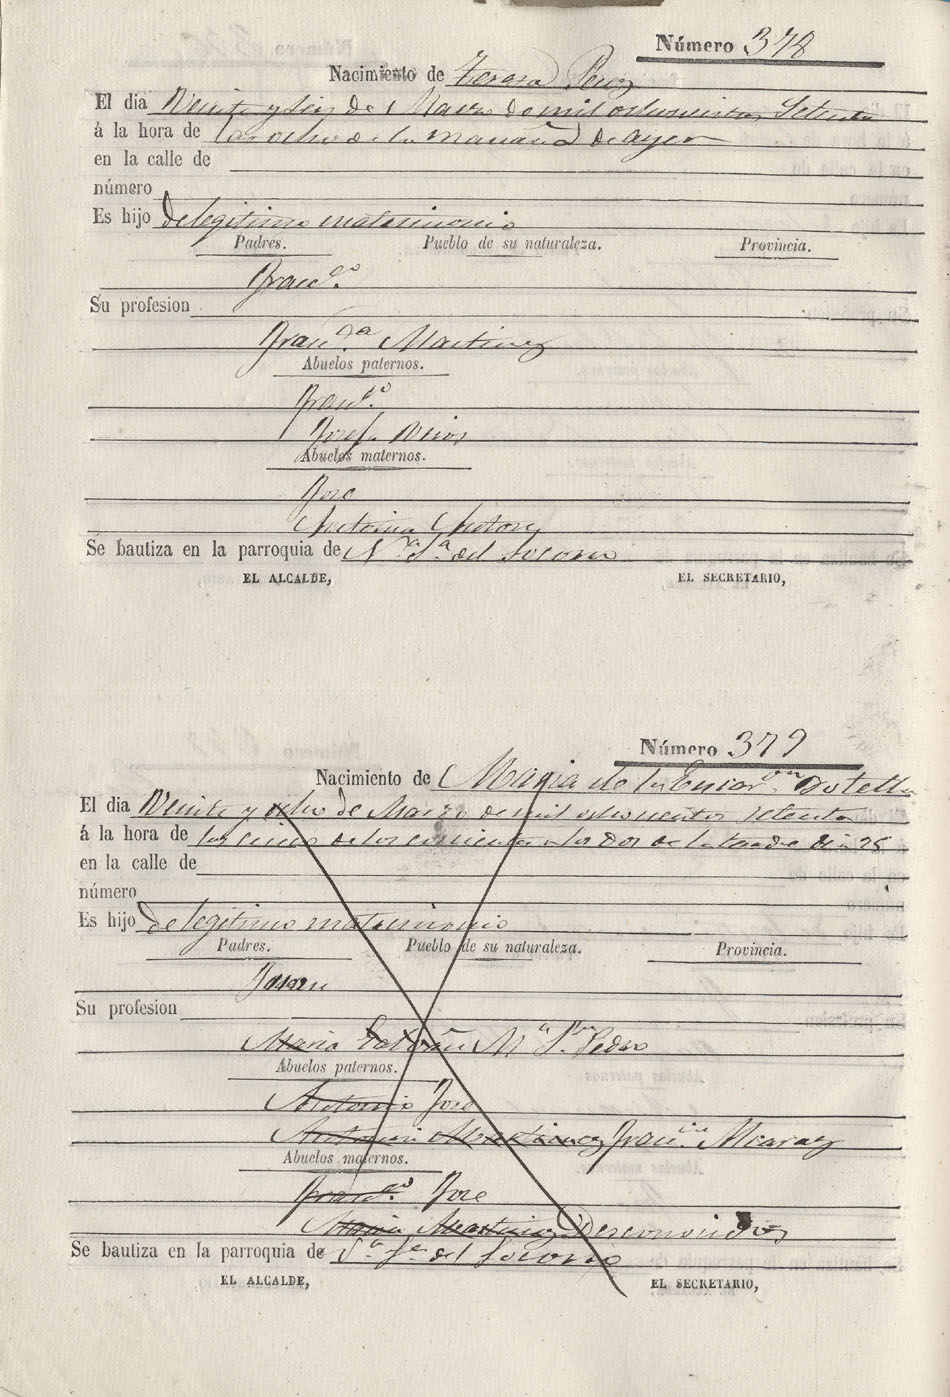 Número 378
Nacimiento de Teresa Perez
El dia Veinte y seis de Marzo de mil ochocientos Setenta
á la hora de las ocho de la mañana de ayer
en la calle de
número
Es hijo de legitimo matrimonio
Padres. Pueblo de su naturaleza. Provincia.
Franco.
Su profesion
Franca. Martinez
Abuelos paternos.
Franco.
Josefa
Abuelos maternos.
Jose
Antonia
Se bautiza en la parroquia de Nra. Sa. del Socorro
EL ALCALDE, EL SECRETARIO,
Número 379
Nacimiento de Maria de la Encaron. Botella
El dia Veinte y ocho de Marzo de mil ochocientos setenta
á la hora de las de los corrientes a las dos de la tarde dia 25
en la calle de
número
Es hijo de legitimo matrimonio
Padres. Pueblo de su naturaleza. Provincia.
Su profesion
Maria Ma. Pedro
Abuelos paternos.
Antonio Jose
Antonia Martinez Alcaraz
Abuelos maternos.
Franco. Jose
Maria Martinez Desconocidos
Se bautiza en la parroquia de Sa. del Socorro
EL ALCALDE, EL SECRETARIO,